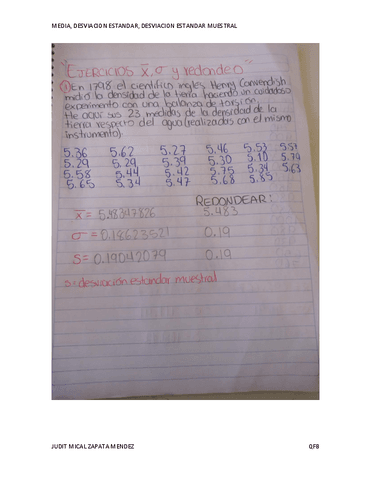 MEDIA, DESVIACION ESTANDAR, DESVIACION ESTANDAR MUESTRAL
"EJERCICIOS x̄, σ y redondeo"
① En 1798 el científico ingles, Henry Cavendish
midió la densidad de la tierra haciendo un cuidadoso
experimento con una balanza de torsión.
He aqui sus 23 medidas de la densidad de la
tierra respecto del agua (realizadas con el mismo
instrumento).
5.36 5.62 5.27 5.46 5.53 5.57
5.29 5.29 5.39 5.30 5.10 5.79
5.58 5.44 5.42 5.75 5.34 5.63
5.65 5.34 5.47 5.68 5.85
REDONDEAR:
x̄ = 5.48347826 5.483
σ = 0.18623521 0.19
S = 0.19042079 0.19
s = desviación estandar muestral
JUDIT MICAL ZAPATA MENDEZ QFB